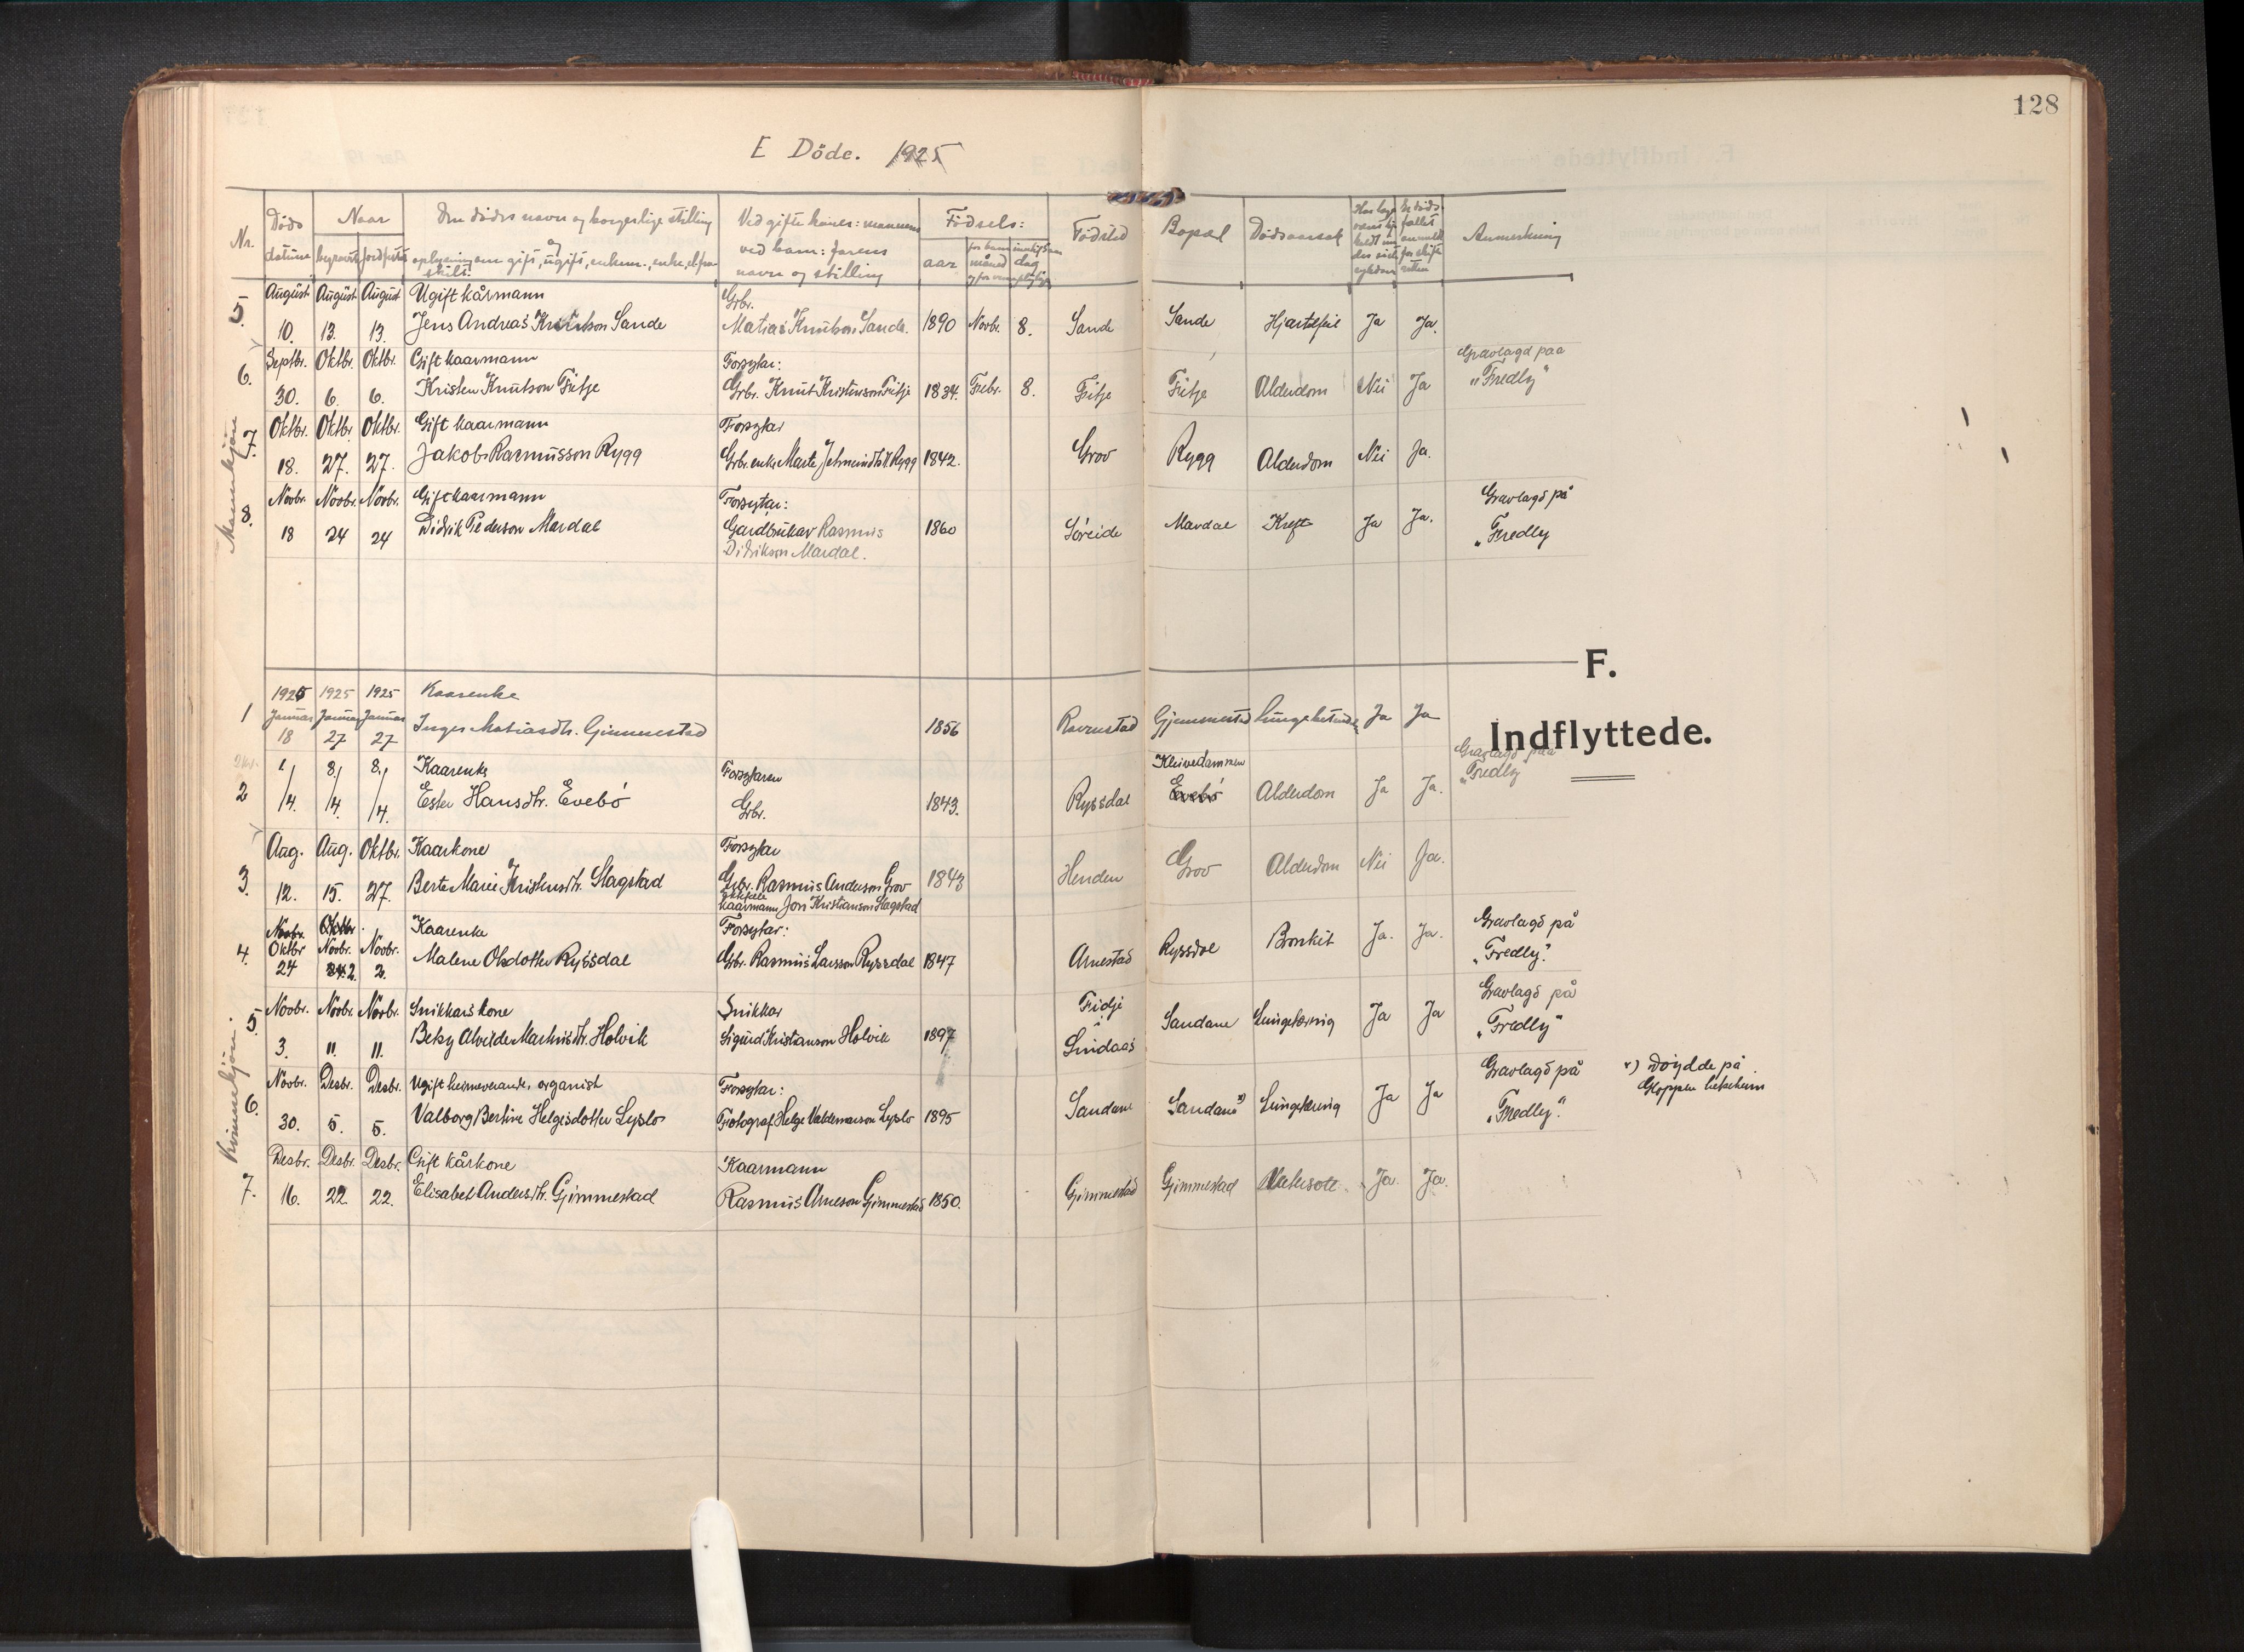 128
E Döde. 1925
Nr.
Döds
datum
Naar
begravet
jordfestet
Den dödes navn og borgerlige stilling
og
oplysning om gift, ugift, enkem., enke, el. fra-
skilt.
Ved gifte koner: mannens
ved barn: farens
navn og stilling
Födsels:
aar
måned
dag
Födsted
Bopæl
Dödsaarsak
Anmerkning
Mannkjön
5.
August 10.
August 13.
August 13.
Ugift kårmann
Jens Andreas Knutson Sande
Gbr.
Matias Knutson Sande.
1890 Novbr. 8.
Sande
Sande
Hjartefeil
Ja
Ja.
6.
Septbr. 30.
Oktbr. 6.
Oktbr. 6.
Gift kaarmann
Kristen Knutson Fitje
Forsytar:
Gbr. Knut Kristenson Fitje
1834. Febr. 8.
Fitje
Fitje
Alderdom
Nei
Ja
Gravlagd paa
"Fredly"
7.
Oktbr. 18.
Oktbr 27.
Oktbr. 27.
Gift kaarmann
Jakob Rasmusson Rygg
Forsytar
Gbr. enke Marte Rygg
1842.
Grov
Rygg
Alderdom
Nei
Ja.
8.
Novbr. 18
Novbr. 24
Novbr. 24
Gift kaarmann
Didrik Pederson Mardal
Forsytar:
Gardbrukar Rasmus
Didrikson Mardal.
1860
Søreide
Mardal
Kreft
Ja
Ja.
Gravlagd på
"Fredly
F.
Indflyttede.
Kvinnekjön.
1
1925 Januar 18
1925 Januar 27
1925 Januar 27
Kaarenke
Inger Matiasdtr. Gimmestad
1856
Ravnestad
Gjemmestad
Lungebetendelse
Ja
Ja
2
1/4.
8./4.
8./4.
Kaarenke
Ester Hansdtr. Evebø
Forsytaren
Gbr.
1843.
Ryssdal
Kleivedammen
Evebø
Alderdom
Ja
Ja.
Gravlagd paa
"Fredly
3.
Aug. 12.
Aug. 15.
Oktbr. 27.
Kaarkone
Berte Marie Kristensdtr. Slagstad
Forsytar
Gbr. Rasmus Anderson Grov
Ektefelle
kaarmann Jon Kristianson Slagstad
1843
Henden
Grov
Alderdom
Nei
Ja.
4.
Novbr. Oktbr 24
Oktbr. Novbr. 2.
Novbr. 2.
Kaarenke
Malene Olsdotter Ryssdal
Forsytar:
Gbr. Rasmus Larsson Ryssdal
1847
Arnestad
Ryssdal
Bronkit
Ja.
Ja.
Gravlagd på
"Fredly".
5.
Novbr. 3.
Novbr. 11.
Novbr. 11.
Snikkars kone
Betsy Alvilde Martinsdtr. Holvik
Snikkar
Sigurd Kristianson Holvik
1897
Fidje
i
Lindaas
Sandane
Lungetæring
Ja
Ja
Gravlagd på
"Fredly"
6.
Novbr. 30.
Desbr. 5.
Desbr. 5.
Ugift heimeverande, organist
Valborg Bertine Helgesdotter Lyslo
Forsytar:
Fotograf Helge Valdemarson Lyslo
1895
Sandane
Sandane x)
Lungetæring
Ja
Ja
Gravlagd på
"Fredly".
x) Døydde på
Gloppen helseheim
7.
Desbr. 16.
Desbr. 22.
Desbr. 22.
Gift kårkone
Elisabet Andersdtr. Gimmestad
Kaarmann
Rasmus Arneson Gimmestad
1850.
Gimmestad
Gimmestad
Ja.
Ja.